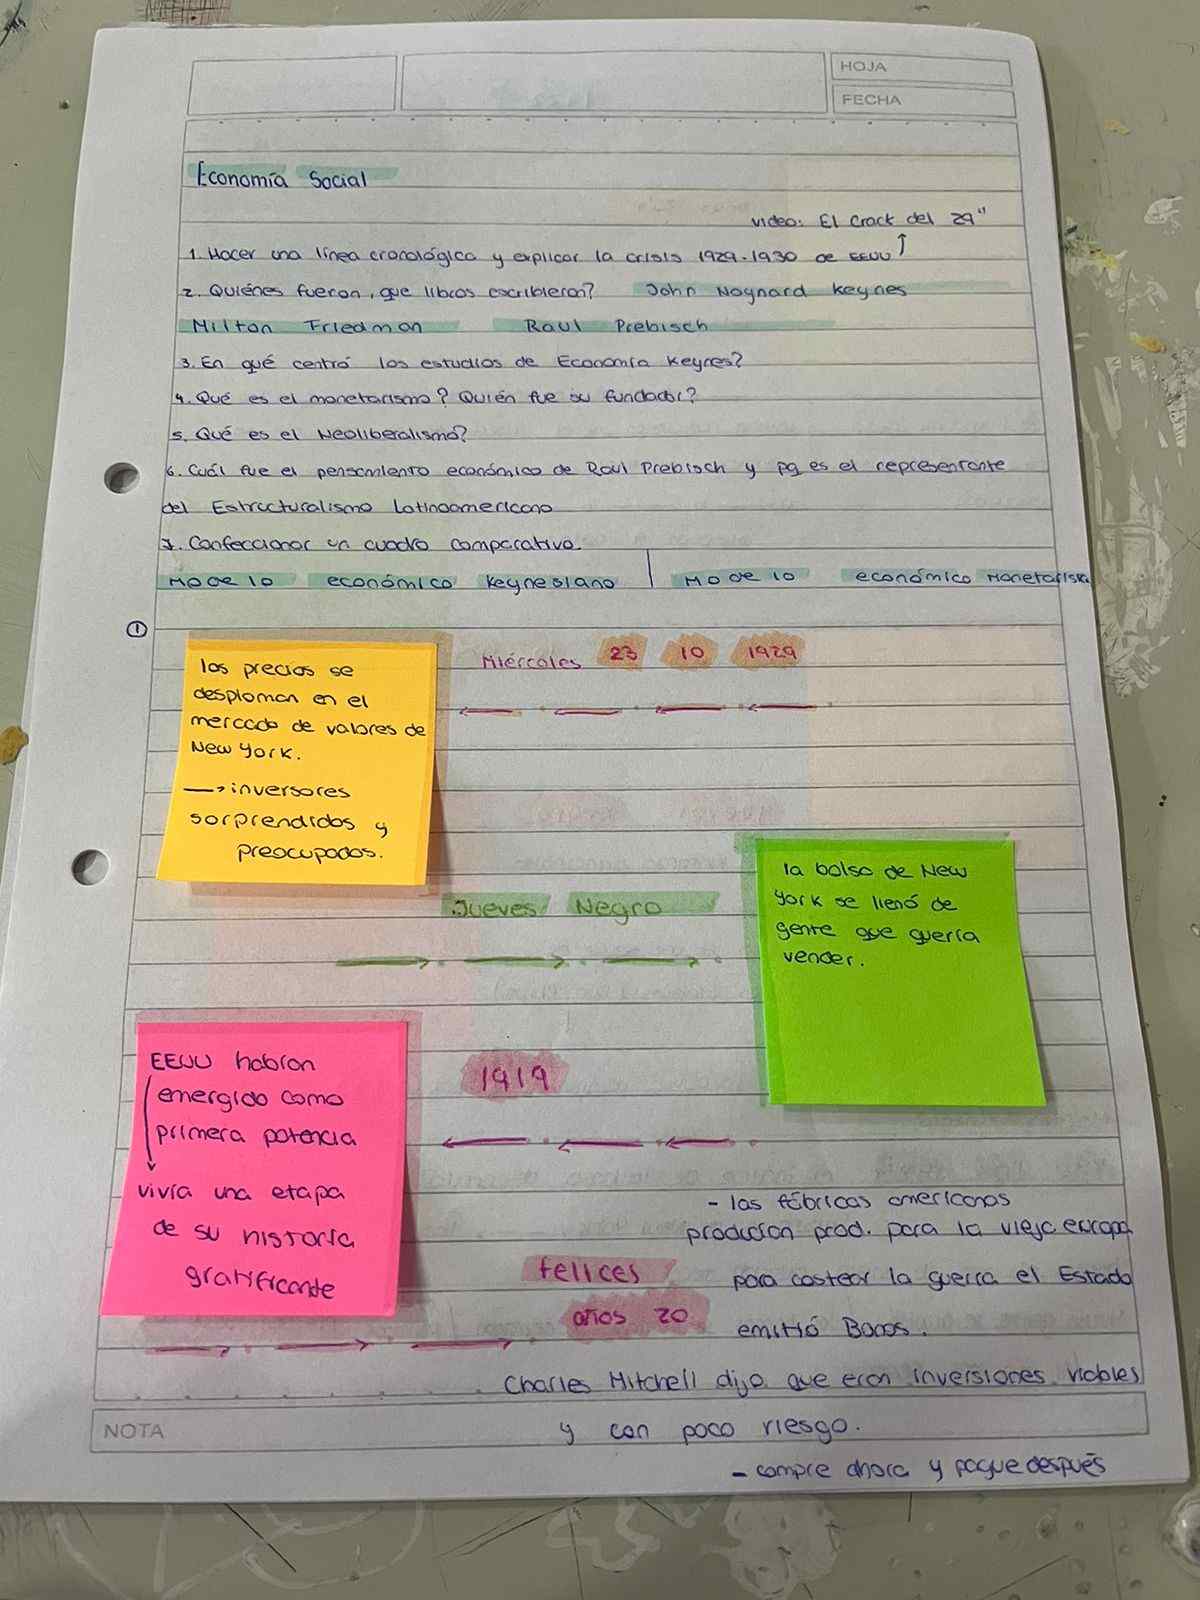 HOJA
FECHA
Economía Social
video: El Crack del 29"
1. Hacer una línea cronológica y explicar la crisis 1929-1930 de EEUU
2. Quiénes fueron, que libros escribieron? John Maynard Keynes
Milton Friedman Raul Prebisch
3. En qué centró los estudios de Economía Keynes?
4. Qué es el monetarismo? Quién fue su fundador?
5. Qué es el Neoliberalismo?
6. Cuál fue el pensamiento económico de Raul Prebisch y pq es el representante
del Estructuralismo Latinoamericano
7. Confeccionar un cuadro comparativo.
Modelo económico Keynesiano | Modelo económico Monetarista
①
los precios se
desploman en el
mercado de valores de
New York.
→ inversores
sorprendidos y
preocupados.
Miércoles 23 10 1929
Jueves Negro
la bolsa de New
York se llenó de
gente que quería
vender.
EEUU habían
emergido como
primera potencia
vivía una etapa
de su historia
gratificante
1919
- las fábricas americanas
producían prod. para la vieja europa
para costear la guerra el Estado
emitió Bonos.
felices
años 20
Charles Mitchell dijo que eran inversiones viables
y con poco riesgo.
- compre ahora y pague después
NOTA